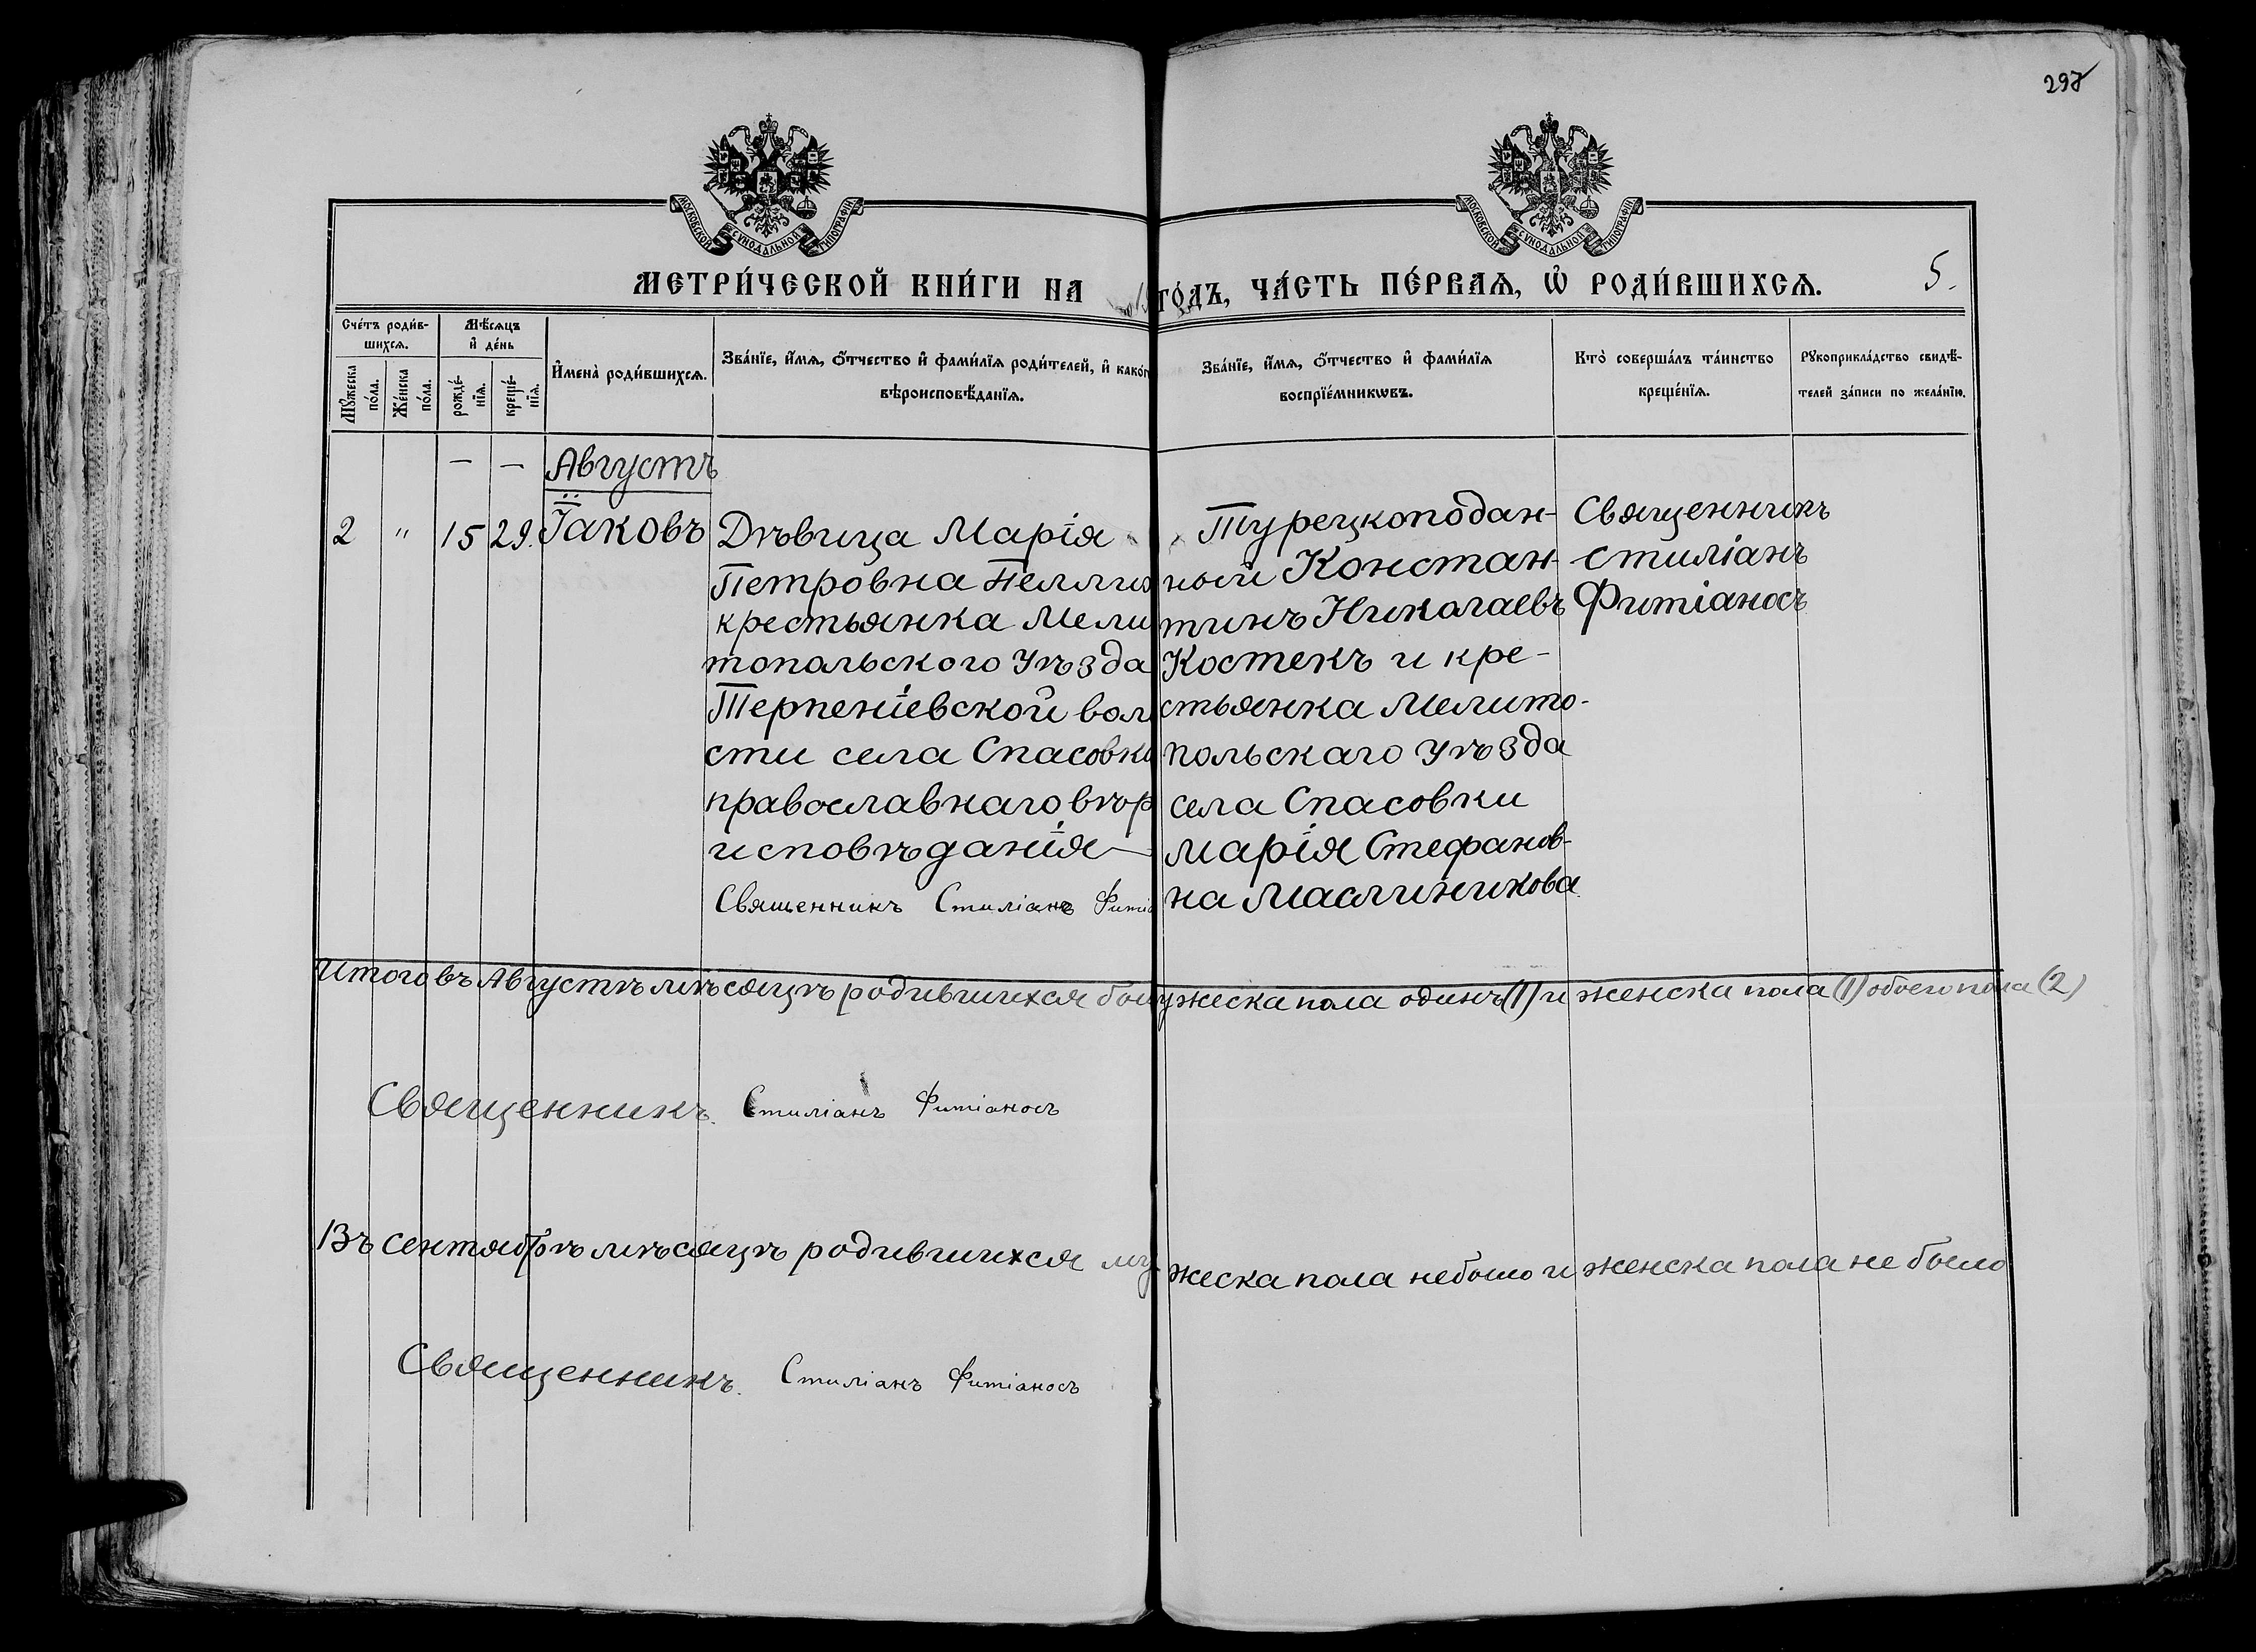 297
МОСКОВСКОЙ СУНОДАЛЬНОЙ ТИПОГРАФІИ
МОСКОВСКОЙ СУНОДАЛЬНОЙ ТИПОГРАФІИ
МЕТРИ́ЧЕСКОЙ КНИ́ГИ НА
ГО́ДЪ, ЧА́СТЬ ПЕ́РВАѦ, Ѡ҆ РОДИ́ВШИХСѦ.
5.
Сче́тъ роди́в-
шихсѧ.
Мѣ́сѧцъ
и҆ де́нь
И҆мена̀ роди́вшихсѧ.
Зва́нїе, и҆́мѧ, ѻ҆́тчество и҆ фами́лїѧ роди́телей, и҆ како́г
вѣроисповѣ́данїѧ.
Мꙋ́жеска по́ла.
Же́нска по́ла.
рожде́-
нїѧ.
креще́-
нїѧ.
Зва́нїе, и҆́мѧ, ѻ҆́тчество и҆ фами́лїѧ
воспрїе́мникѡвъ.
Кто̀ соверша́лъ та́инство
креще́нїѧ.
Рꙋкоприкла́дство свидѣ́-
телей за́писи по жела́нїю.
— — Августъ
2 " 15 29. Іаковъ
Дѣвица Марія
Петровна
крестьянка Мели
топольского уѣзда
Терпеніевской вол
сти села Спасовки
православнаго вѣр
исповѣданія —
Священникъ Стиліанъ
Турецкоподан-
ный Констан-
тинъ Николаевъ
Костекъ и кре-
стьянка Мелито-
польскаго уѣзда
села Спасовки
Марія Стефанов-
на Маслиникова.
Священникъ
Стиліанъ
Фитіаносъ
Итого въ Августѣ мѣсяцѣ родившихся
ужеска пола одинъ (1) и женска пола (1) обоего пола (2)
Священникъ. Стиліанъ Фитіаносъ
Въ сентябрѣ мѣсяцѣ родившихся му
жеска пола небыло и женска пола не было
Священникъ. Стиліанъ Фитіаносъ